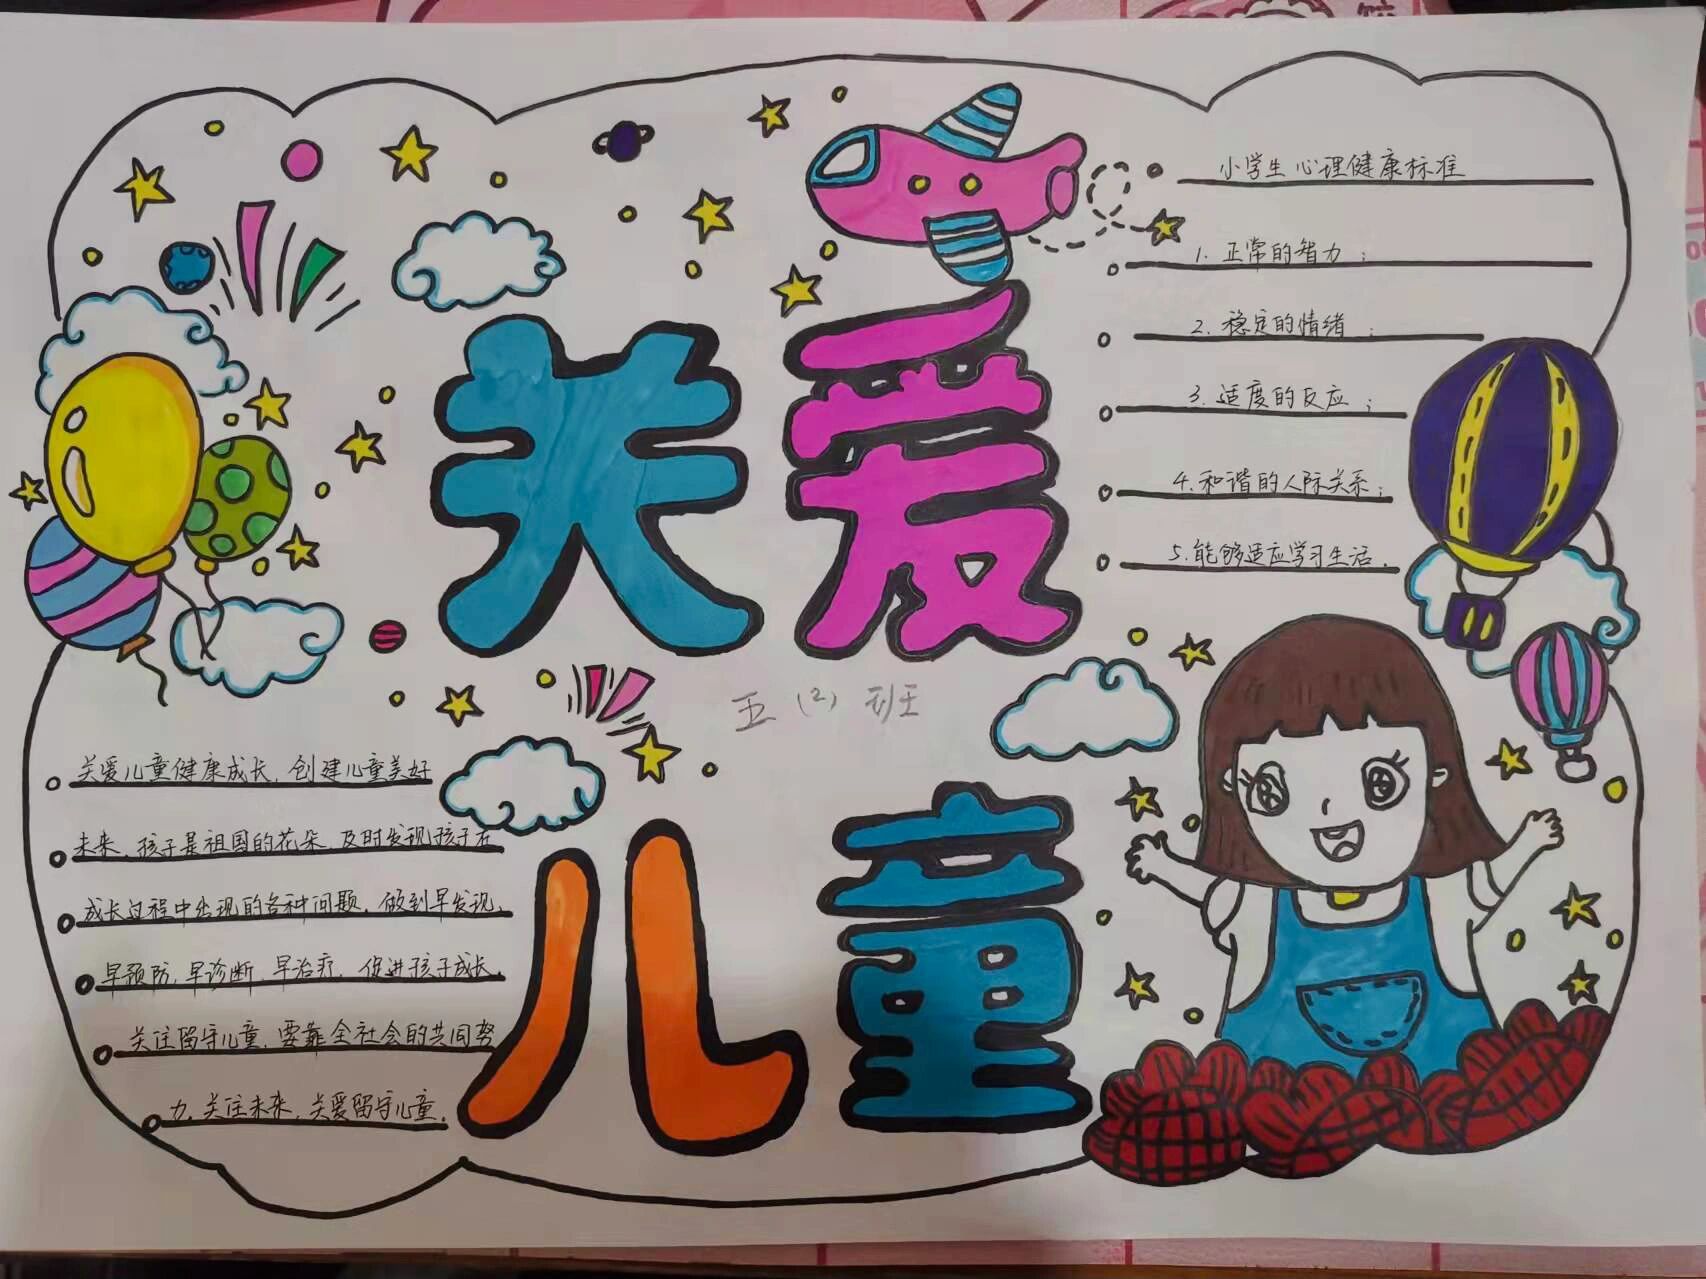 关爱
儿童
五（2）班
小学生心理健康标准
1. 正常的智力；
2. 稳定的情绪；
3. 适度的反应；
4. 和谐的人际关系；
5. 能够适应学习生活.
关爱儿童健康成长，创建儿童美好
未来，孩子是祖国的花朵，及时发现孩子在
成长过程中出现的各种问题，做到早发现，
早预防，早诊断，早治疗，促进孩子成长，
关注留守儿童，要靠全社会的共同努
力，关注未来，关爱留守儿童。